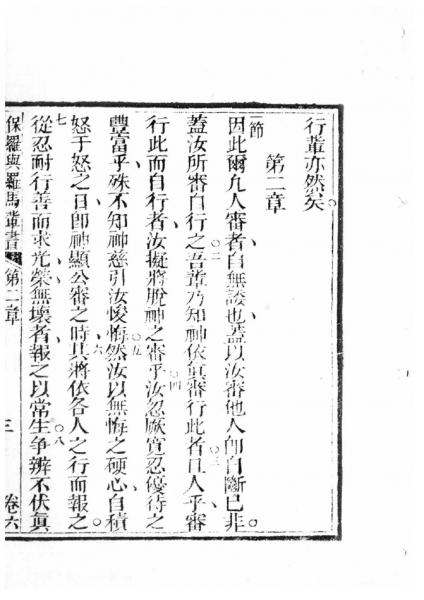 行輩亦然矣
第二章
一節
因此爾凡人審者自無諉也蓋以汝審他人即自斷已非
蓋汝所審自行之吾輩乃知神依眞審行此者且人乎審
行此而自行者汝擬將脫神之審乎汝忍厥寬忍優待之
豐富乎殊不知神慈引汝悛悔然汝以無悔之硬心自積
怒于怒之日卽神顯公審之時其將依各人之行而報之
從忍耐行善而求光榮無壞者報之以常生爭辨不伏眞
保羅與羅馬輩書 第二章 三 卷六